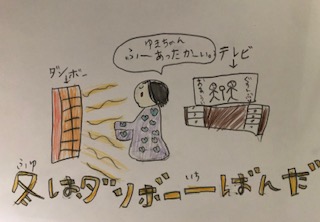 ゆきちゃん
ふ〜あったかーい。
ダンボー
テレビ
ふゆ いち
冬はダンボー一ばんだ